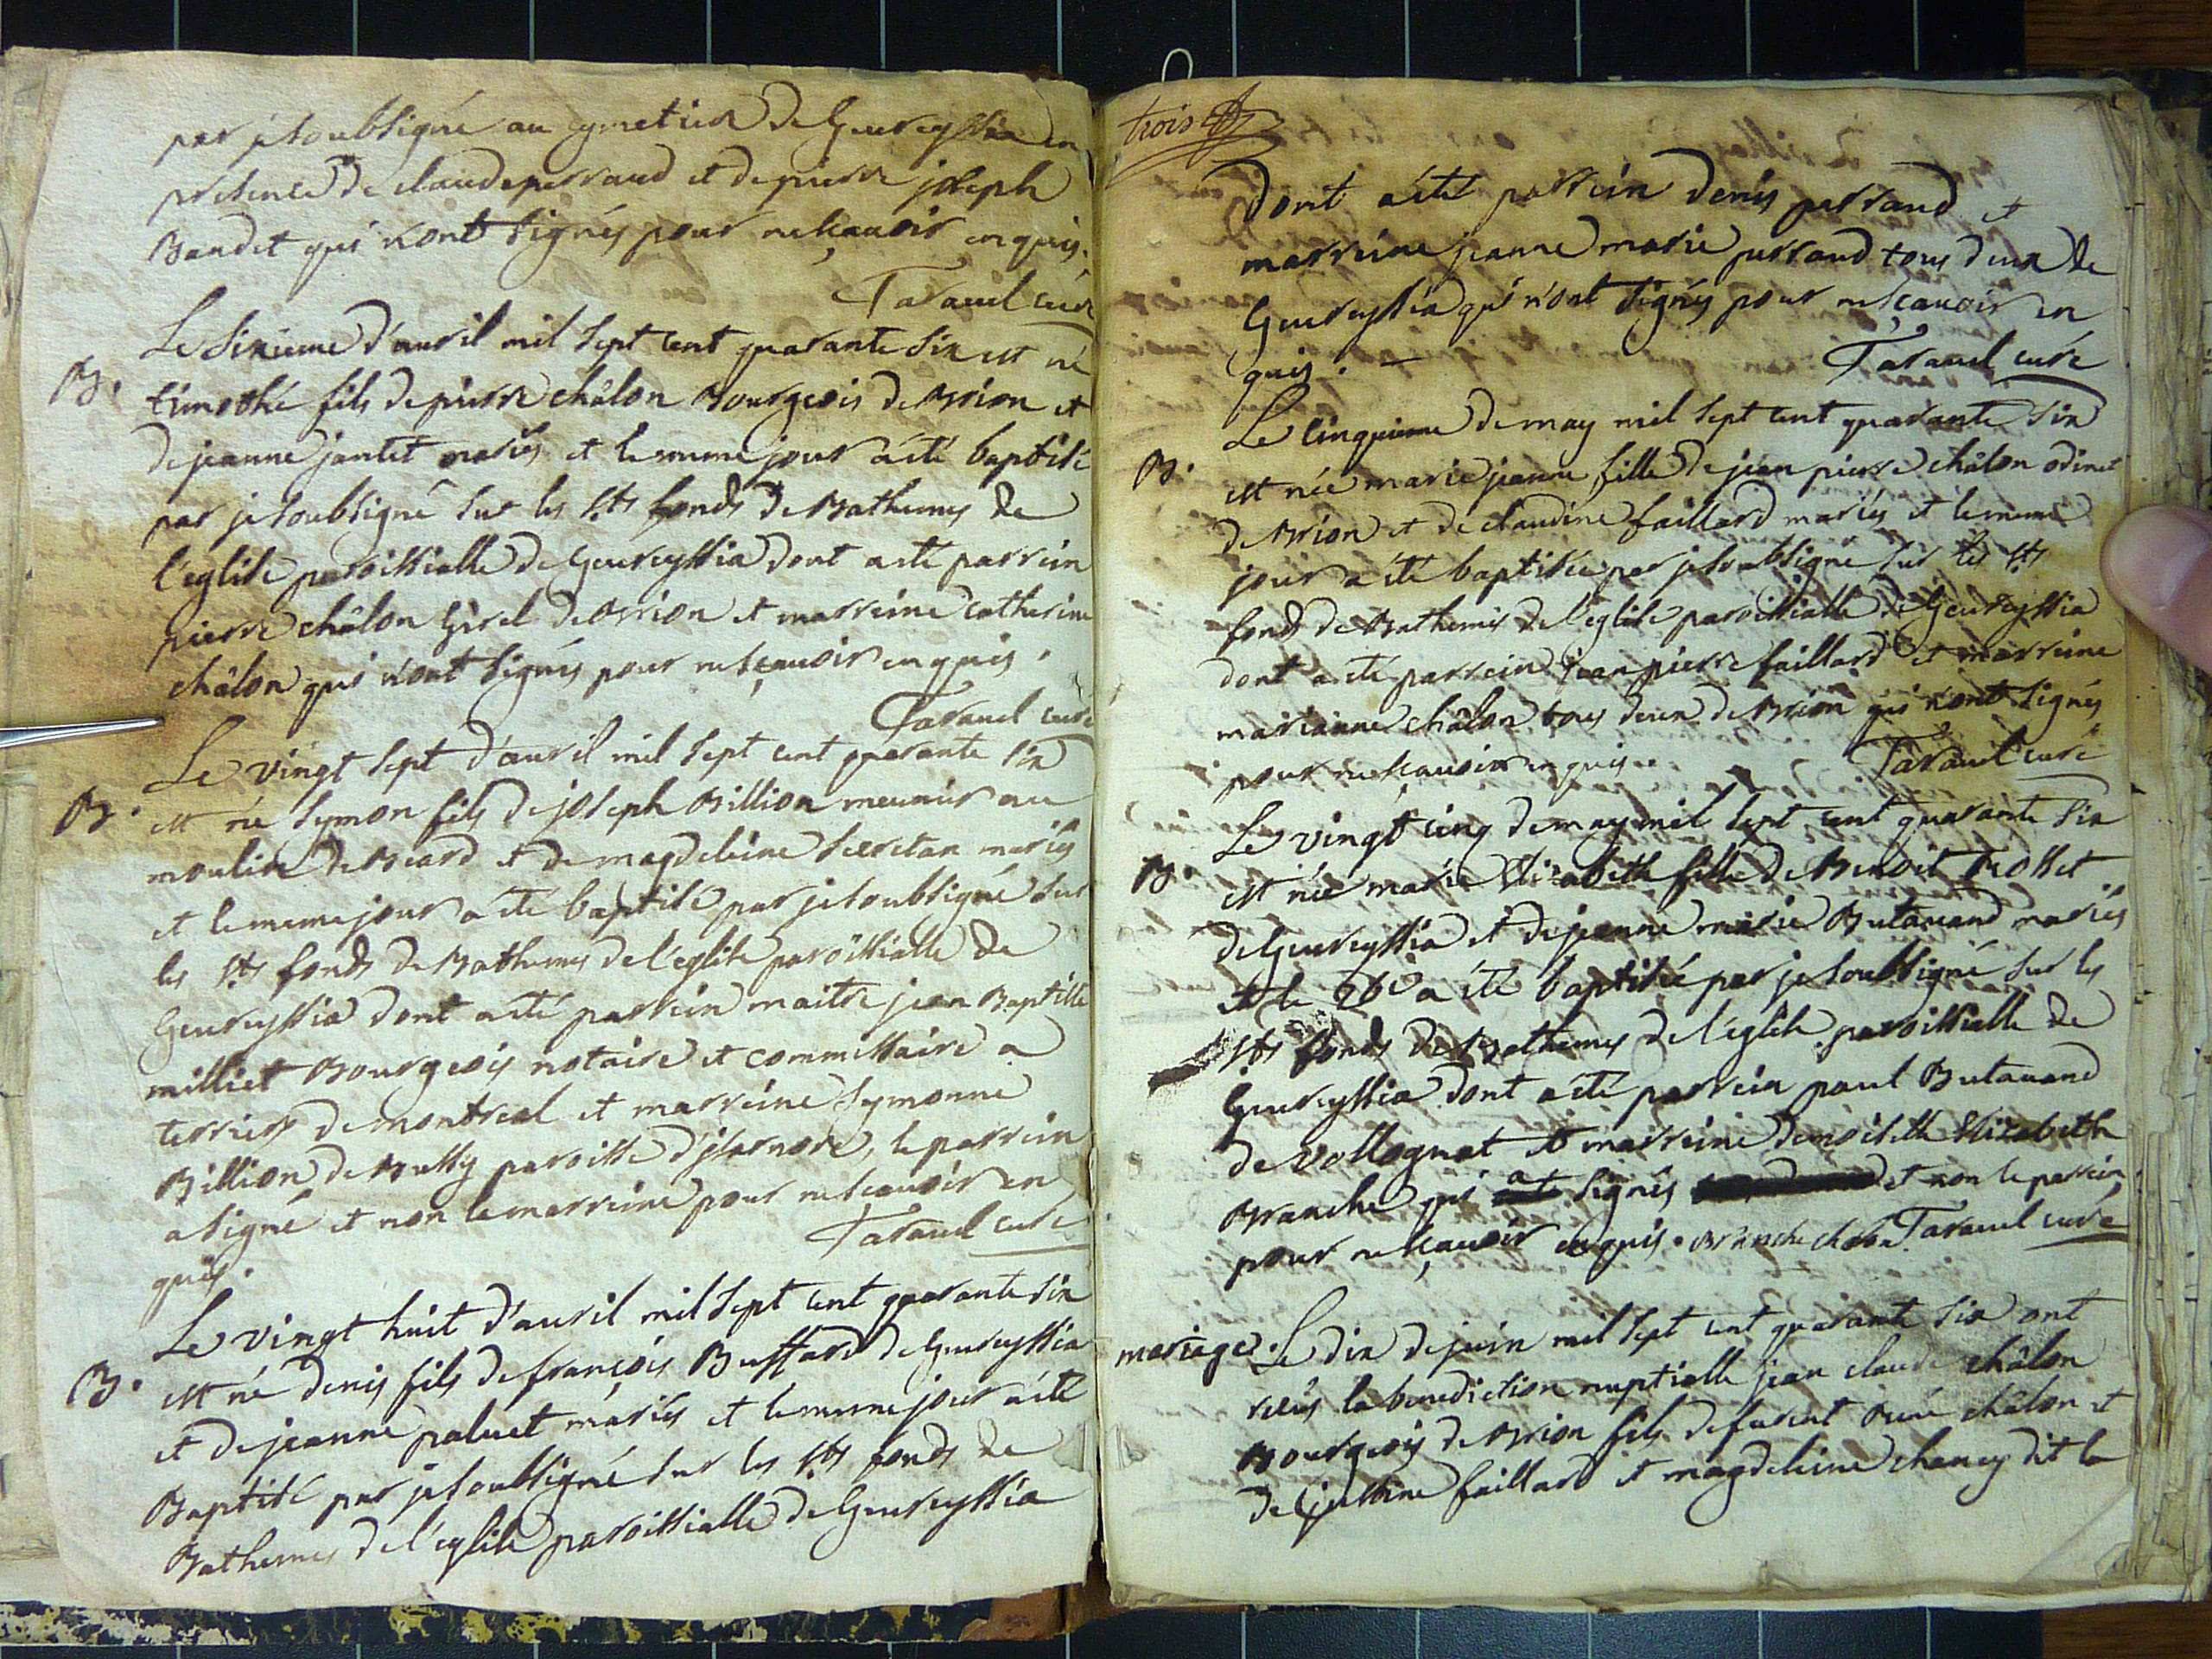 par je soubsigné au cymetiere de Geureyssia en
presence de claude perraud et de pierre joseph
Baudet qui n'ont signés pour ne sçauoir enquis.
Tarauel curé
B. Le sixieme d'auril mil sept cent quarante six est né
timothé fils de pierre châlon Bourgeois de Brion et
de jeanne jantet mariés et le meme jour a été baptisé
par je soubsigné sur les sts fonds de Bathemes de
l'eglise paroissialle de Geureyssia dont a été parrein
pierre châlon Girel de Brion et marreine catherine
châlon qui n'ont signés pour ne sçauoir enquis.
Tarauel curé
Le vingt sept d'auril mil sept cent quarante six
B. est né symon fils de joseph Billion meunier au
moulin de Beard et de magdeleine secretan mariés
et le meme jour a été baptisé par je soubsigné sur
les sts fonds de Bathemes de l'eglise paroissialle de
Geureyssia dont a été parrein maitre jean Baptiste
milliet Bourgeois notaire et commissaire a
terriers de montreal et marreine symonne
Billion de Bussy paroisse d'isarnore, le parrein
a signé et non la marreine pour ne sceauoir en
quis. Tarauel curé
Le vingt huit d'auril mil sept cent quarante six
B. est né denis fils de françois Buffard de Geureyssia
et de jeanne paluet mariés et le meme jour a été
Baptisé par je soubsigné sur les sts fonds de
Bathemes de l'eglise paroissialle de Geureyssia
trois
dont a été parrein denis perraud et
marreine jeanne marie perraud tous deux de
Geureyssia qui n'ont signés pour ne sçauoir en
quis. Tarauel curé
Le cinquieme de may mil sept cent quarante six
B. est née marie jeanne fille de jean pierre châlon odinet
de Brion et de claudine faillard mariés et le meme
jour a été baptisée par je soubsigné sur les sts
fonds de Bathemes de l'eglise paroissialle de Geureyssia
dont a été parrein jean pierre faillard et marreine
marianne châlon tous deux de Brion qui n'ont signés
pour ne sçauoir enquis. Tarauel curé
Le vingt cinq de may mil sept cent quarante six
B. est née marie Elizabeth fille de Benoit
de Geureyssia et de jeanne marie Butauand mariés
et le 26e a été baptisée par je soubsigné sur les
sts fonds de Bathemes de l'eglise paroissialle de
Geureyssia dont a été parrein paul Butauand
de vollognat et marreine demoiselle Elizabeth
Branche qui a signés et non le parrein
pour ne sçauoir enquis. Branche Tarauel curé
mariage. Le dix de juin mil sept cent quarante six ont
reçus la benediction nuptialle jean claude châlon
Bourgeois de Brion fils de furent René châlon et
de faillard et magdeleine chaney dit la